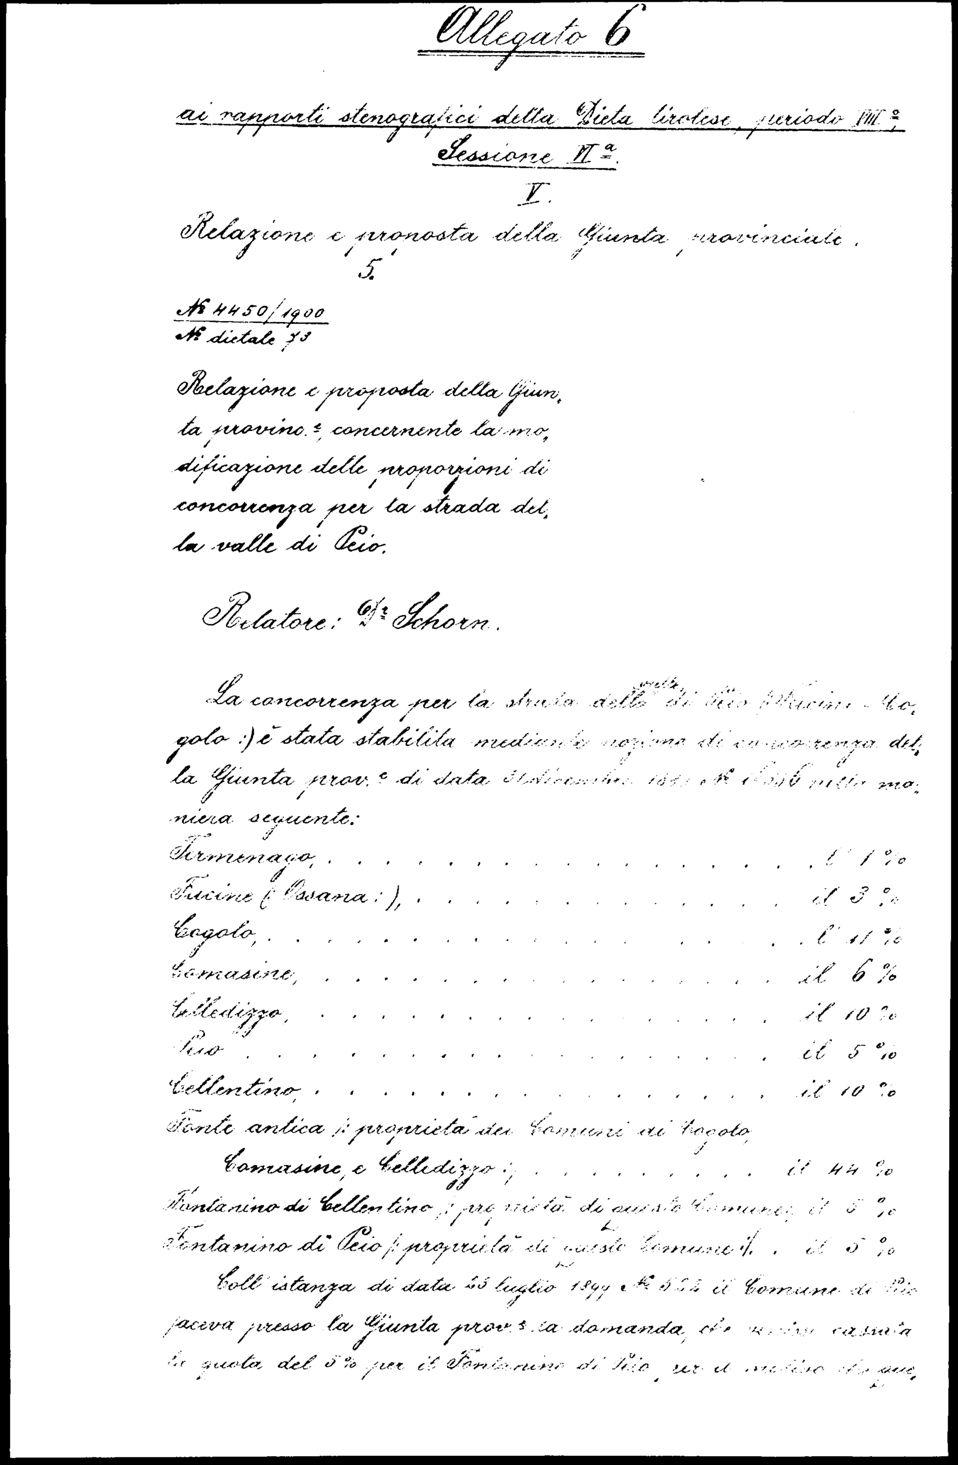 Allegato 6
ai rapporti stenografici della Dieta tirolese, periodo VIII.º,
Sessione VIª.
V.
Relazione e proposta della Giunta provinciale.
5.
Nº 4450/1900
Nº dietale 73
Relazione e proposta della Giun,
ta provinc.e, concernente la mo,
dificazione delle proporzioni di
concorrenza per la strada del,
la valle di Peio.
Relatore: Dr Schorn.
La concorrenza per la strada della valle di Peio /:Fucine - Co,
golo :) è stata stabilita mediante nozione di concorrenza del,
la Giunta prov.e di data 31 dicembre Nº nella ma,
niera seguente:
Termenago, . . . . . . . . . . . . . . . . . l' 1 %
Fucine (: Ossana :), . . . . . . . . . . . . . il 3 %
Cogolo, . . . . . . . . . . . . . . . . . l' 11 %
Comasine, . . . . . . . . . . . . . . . . il 6 %
Celledizzo, . . . . . . . . . . . . . . . . il 10 %
Peio . . . . . . . . . . . . . . . . . il 5 %
Cellentino, . . . . . . . . . . . . . . . . il 10 %
Fonte antica /: proprietà dei Comuni di Cogolo,
Comasine, e Celledizzo :/, . . . . . . . . . . il 44 %
Fontanino di Cellentino /: proprietà di questo Comune:/, il 5 %
Fontanino di Peio /: proprietà di questo Comune :/. . il 5 %
Coll' istanza di data 25 luglio 1899 Nº 522 il Comune di Peio
faceva presso la Giunta prov.e la domanda, che cassata
la quota del 5% per il Fontanino di Peio, per il motivo che que,